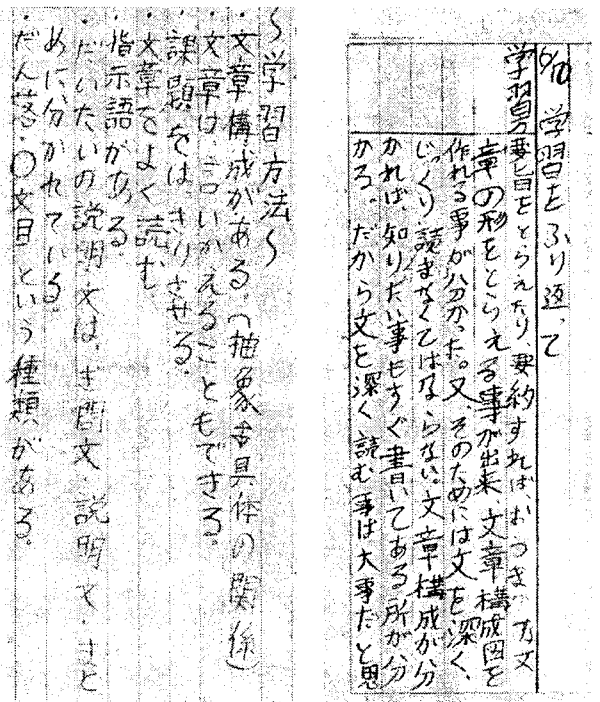 6/10 学習をふり返って
学習方 要旨をとらえたり、要約すれば、文
章の形をとらえる事が出来、文章構成図を
作れる事が分かった。又、そのためには文を深く、
じっくり読まなくてはならない。文章構成が分
かれば、知りたい事もすぐ書いてある所が分
かる。だから文を深く読む事は大事だと思
〜学習方法〜
・文章構成がある。(抽象 具体の関係)
・文章は、言いかえることもできる。
・課題をはっきりさせる。
・文章をよく読む。
・指示語がある。
・だいたいの説明文は、ぎ問文・説明文・まと
めに、分かれている。
・だん落・〇文目という種類がある。